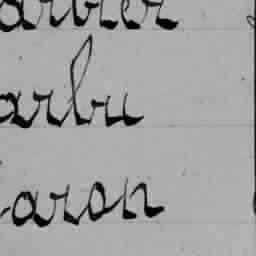 arbier
arbu
aron